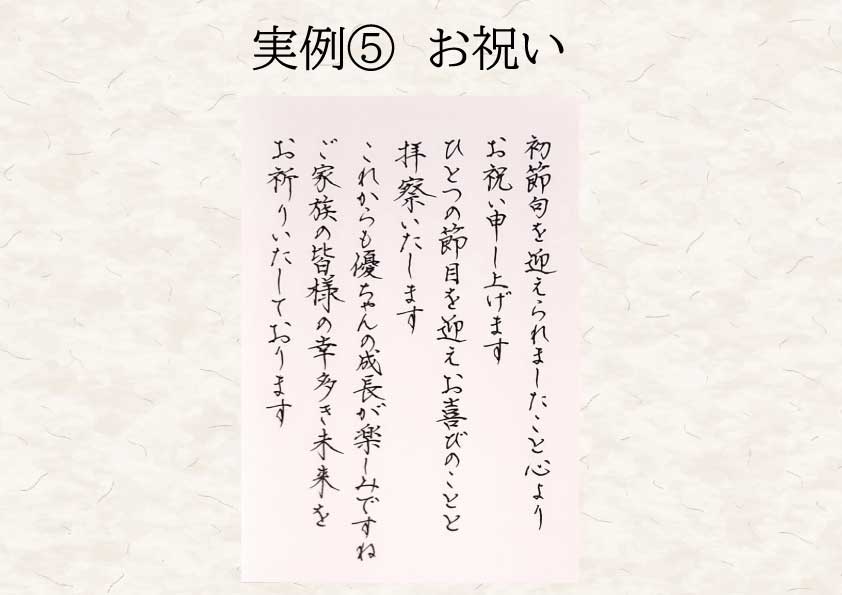 実例⑤ お祝い
初節句を迎えられましたこと心より
お祝い申し上げます
ひとつの節目を迎えお喜びのことと
拝察いたします
これからも優ちゃんの成長が楽しみですね
ご家族の皆様の幸多き未来を
お祈りいたしております